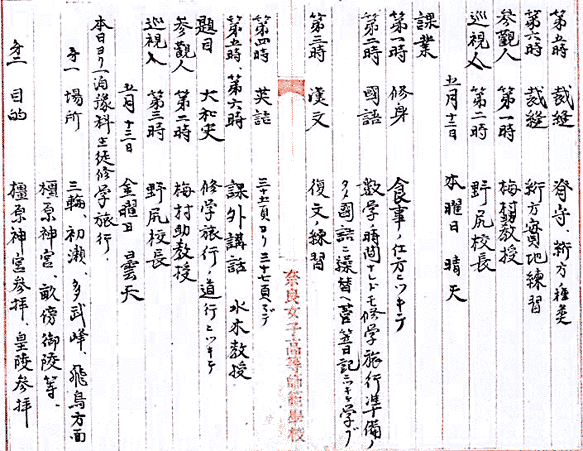 第五時 裁縫 脊守、斬方種類
第六時 裁縫 斬方實地練習
参觀人 第一時 梅村教授
巡視人 第二時 野尻校長
五月十二日 木曜日 晴天
課業
第一時 修身 食事ノ仕方ニツキテ
第二時 國語 數学時間ナレドモ修学旅行準備ノ
タメ國語ニ繰替ヘ菅笠日記ニツキテ学ブ
第三時 漢文 復文練習
奈良女子高等師範學校
第四時 英語 三十五頁ヨリ三十七頁マデ
第五時 第六時 課外講話 水木教授
題目 大和史 修学旅行ノ道行ニツキテ
参觀人 第二時 梅村助教授
巡視人 第三時 野尻校長
五月十三日 金曜日 曇天
本日ヨリ一泊豫科生徒修学旅行、
才一 場所 三輪、初瀬、多武峰、飛鳥方面
橿原神宮、畝傍御陵等、
才二 目的 橿原神宮参拝、皇陵参拝